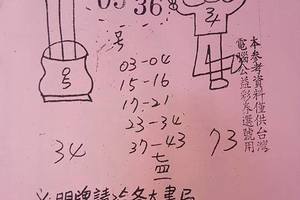 05 36
号
03-04
15-16
17-21
23-34
37-43
34
73
05
本參考資料僅供台灣
電腦公益彩券選號用